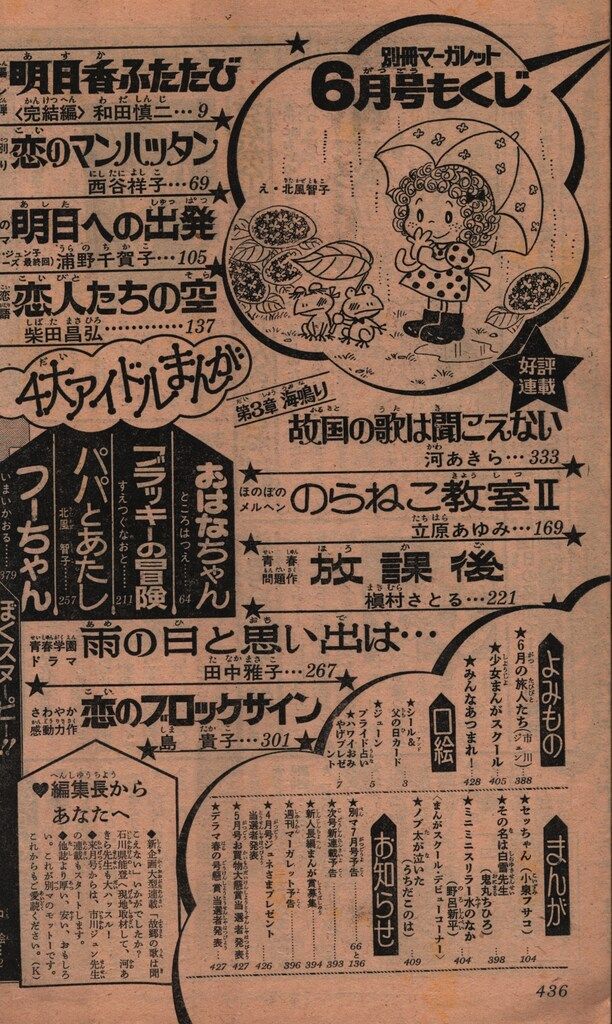 別冊マーガレット
6月号もくじ
え・北風智子
明日香ふたたび
〈完結編〉 和田慎二…9
恋のマンハッタン
西谷祥子…69
明日への出発
ーズ最終回) 浦野千賀子…105
恋人たちの空
柴田昌弘…………137
4大アイドルまんが
おはなちゃん
ところはつえ…64
ブラッキーの冒険
すえつぐなおと…211
パパとあたし
北風 智子…257
フーちゃん
いまいかおる……379
好評
連載
第3章 海鳴り
故国の歌は聞こえない
河あきら…333
ほのぼの
メルヘン
のらねこ教室Ⅱ
立原あゆみ…169
青春
問題作
放課後
槇村さとる…221
青春学園
ドラマ
雨の日と思い出は…
田中雅子…267
さわやか
感動力作
恋のブロックサイン
島 貴子…301
ぼくスヌーピー!!
よみもの
★6月の旅人たち(市川ジュン) 388
★少女まんがスクール 405
★みんなあつまれ! 428
口絵
★シール&父の日カード 3
★ジューンブライド占い 5
★ハワイおみやげプレゼント 7
まんが
★セッちゃん(小泉フサコ) 104
★その名は白雪先生(鬼丸ちひろ) 398
★ミニミニスリラー水のなか(野呂新平) 404
〈まんがスクール・デビューコーナー〉
★ノブ太が泣いた(うちだこのは) 409
お知らせ
★別マ7月号予告 66と136
★次号新連載予告 393
★新人長編まんが賞募集 394
★週刊マーガレット予告 396
★4月号ジュネさまプレゼント当選者発表 426
★5月号お買物大懸賞当選者発表 427
★デラマ春の号懸賞当選者発表 427
♥編集長から
あなたへ
●新企画大型連載「故郷の歌は聞
こえない」いかがでしたか?
石川県能登へ現地取材して、河あ
きら先生も大ハッスル!
●来月号からは、市川ジュン先生
の連載もスタートします。
●他誌より厚い、安い、おもしろ
い。これが別マのモットーです。
これからもご愛読ください。(K)
436